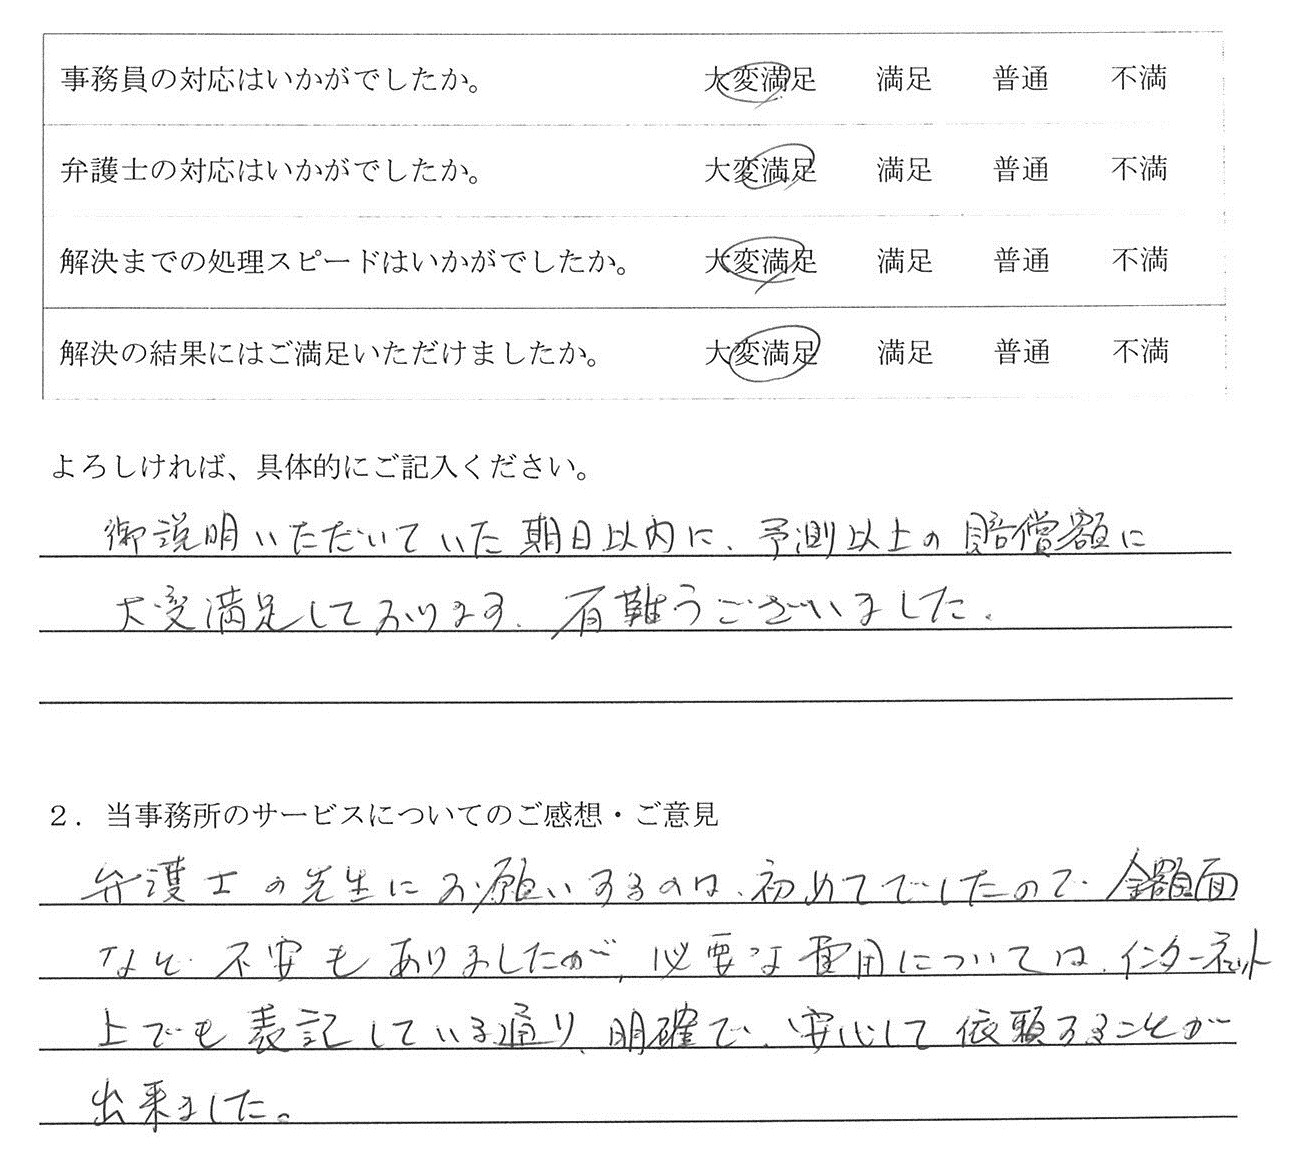 事務員の対応はいかがでしたか。 大変満足 満足 普通 不満
弁護士の対応はいかがでしたか。 大変満足 満足 普通 不満
解決までの処理スピードはいかがでしたか。 大変満足 満足 普通 不満
解決の結果にはご満足いただけましたか。 大変満足 満足 普通 不満
よろしければ、具体的にご記入ください。
御説明いただいていた期日以内に、予測以上の賠償額に
大変満足しております。有難うございました。
2．当事務所のサービスについてのご感想・ご意見
弁護士の先生にお願いするのは、初めてでしたので金額面
など不安もありましたが、必要な費用については、インターネット
上でも表記している通り、明確で、安心して依頼することが
出来ました。